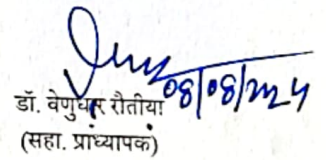 08/08/2024
डॉ. वेणुधर रौतीया
(सहा. प्राध्यापक)